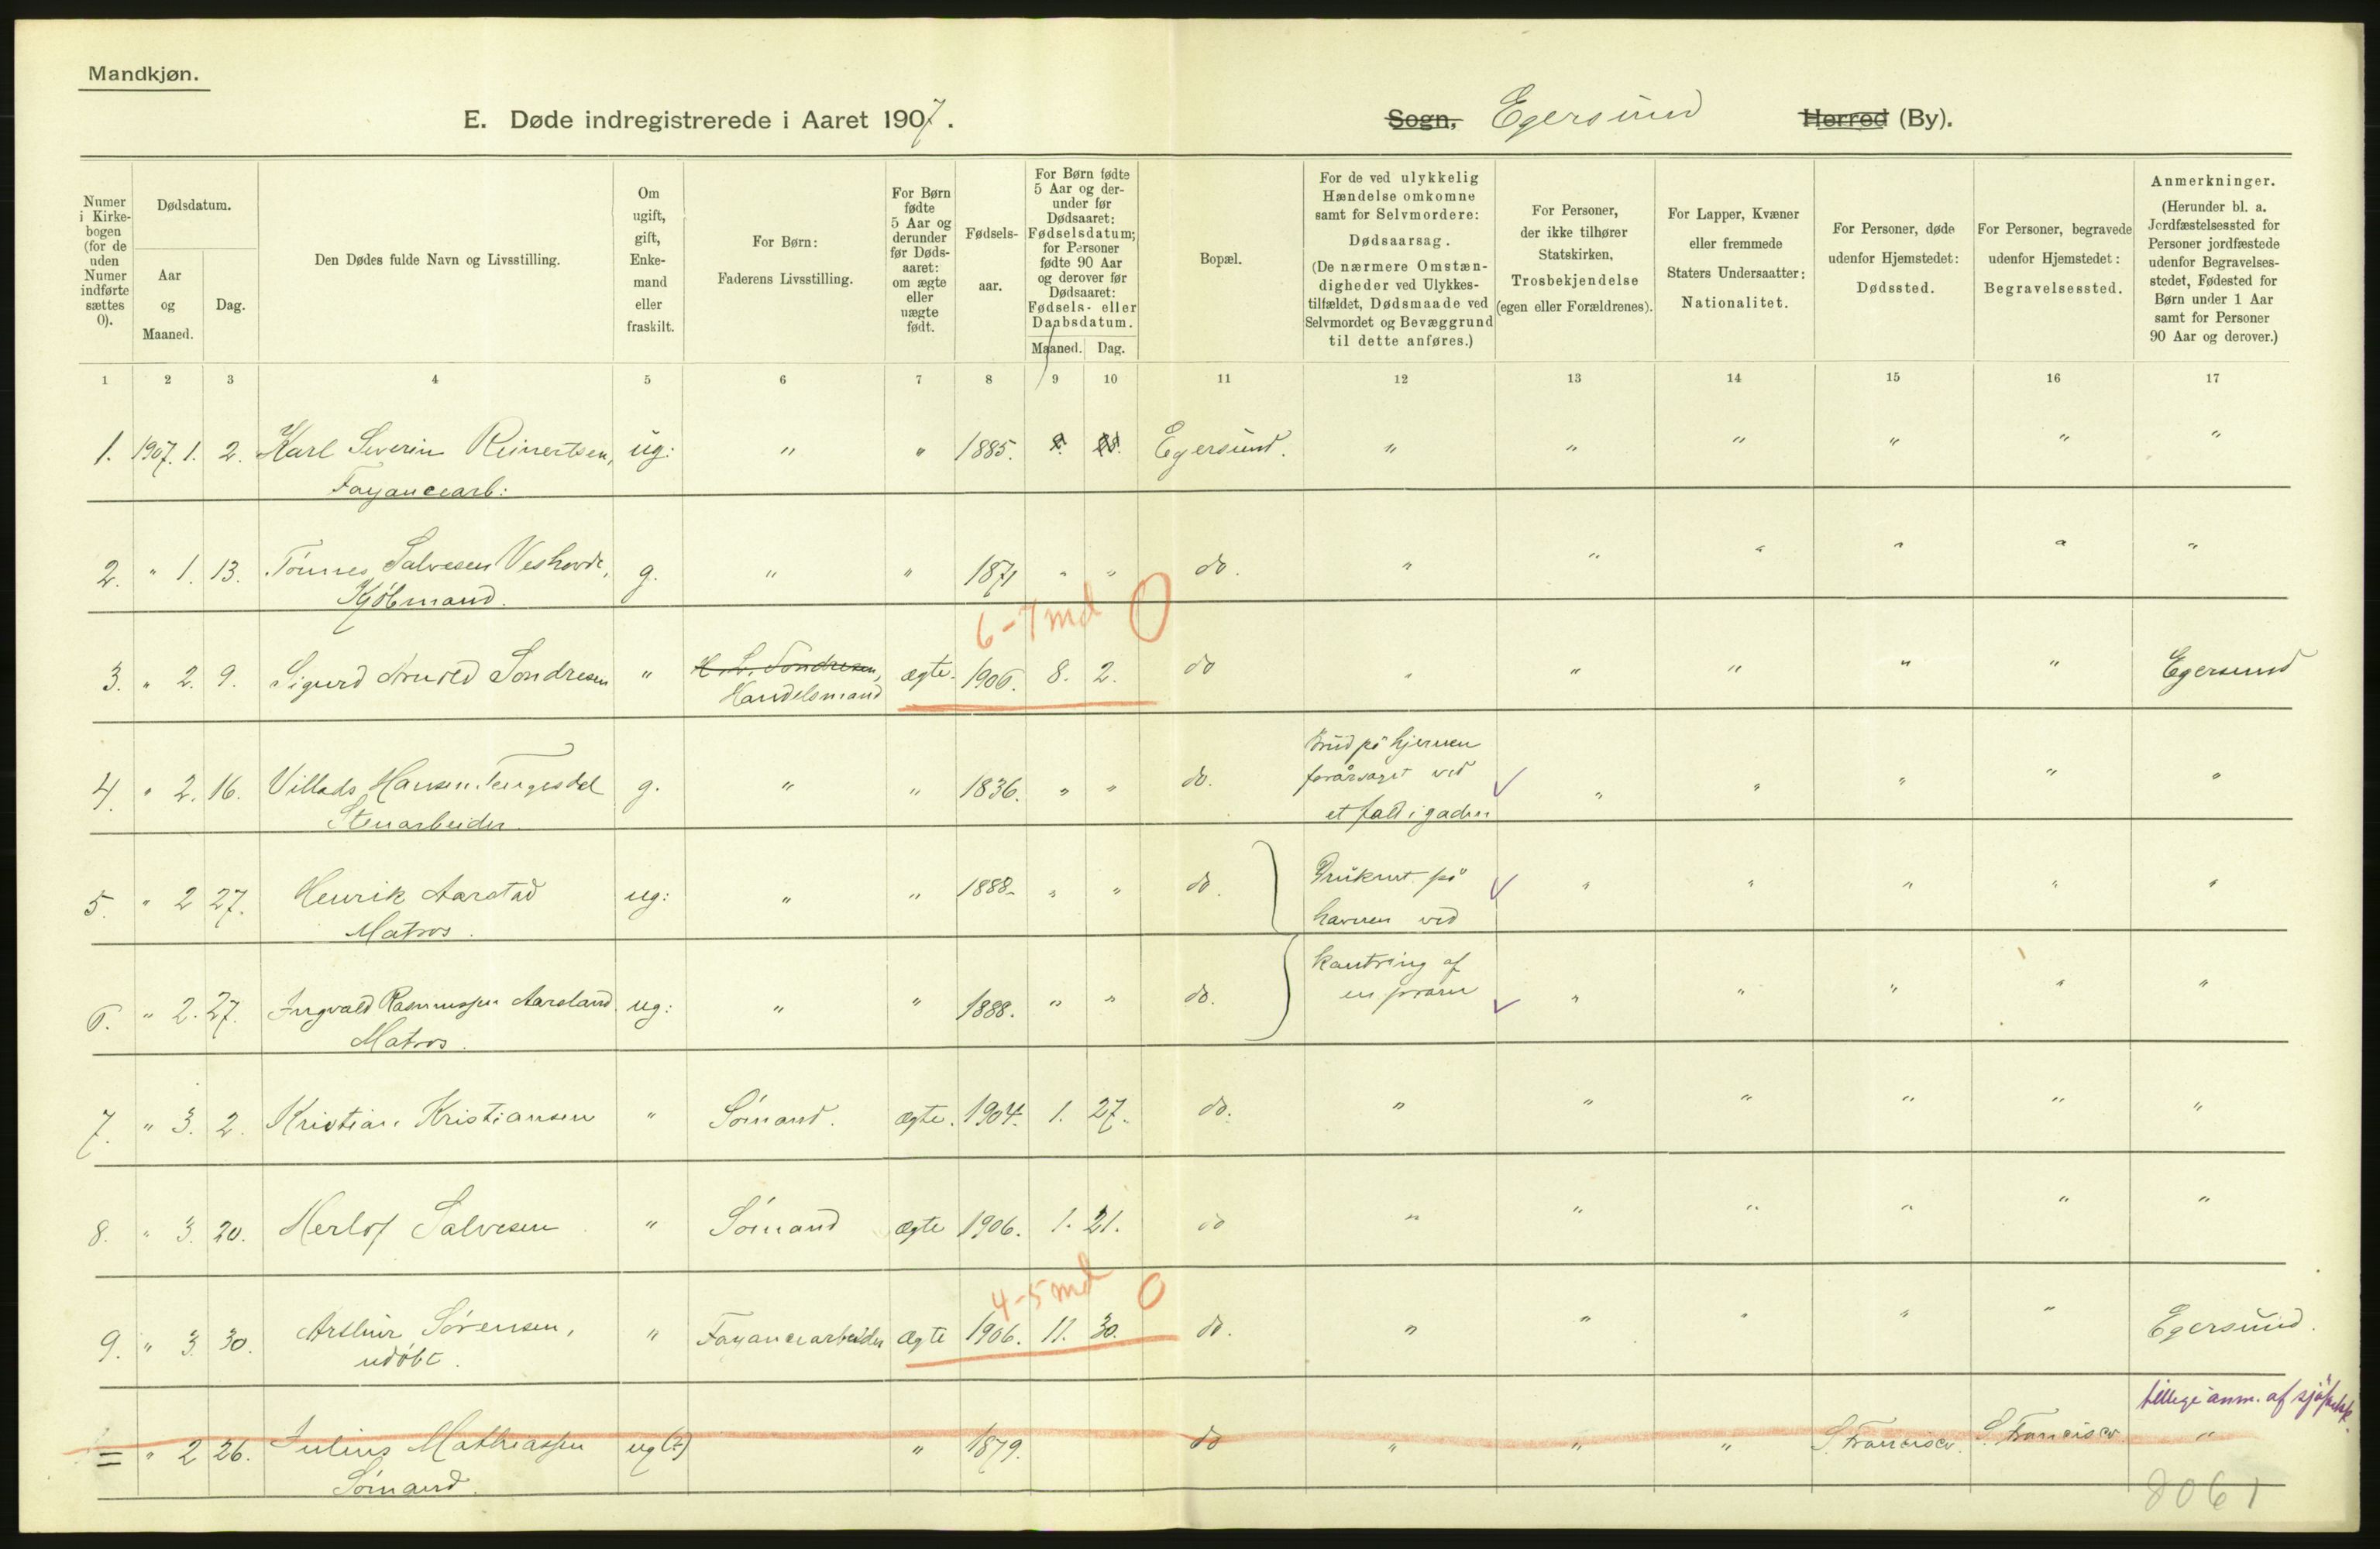 Mandkjøn.
E. Døde indregistrerede i Aaret 1907.
Sogn, Egersund Herred (By).
Numer i Kirkebogen (for de uden Numer indførte sættes 0).
Dødsdatum.
Aar og Maaned.
Dag.
Den Dødes fulde Navn og Livsstilling.
Om ugift, gift, Enkemand eller fraskilt.
For Børn: Faderens Livsstilling.
For Børn fødte 5 Aar og derunder før Dødsaaret: om ægte eller uægte født.
Fødselsaar.
For Børn fødte 5 Aar og derunder før Dødsaaret: Fødselsdatum; for Personer fødte 90 Aar og derover før Dødsaaret: Fødsels- eller Daabsdatum.
Maaned. Dag.
Bopæl.
For de ved ulykkelig Hændelse omkomne samt for Selvmordere: Dødsaarsag. (De nærmere Omstændigheder ved Ulykkestilfældet, Dødsmaade ved Selvmordet og Bevæggrund til dette anføres.)
For Personer, der ikke tilhører Statskirken, Trosbekjendelse (egen eller Forældrenes).
For Lapper, Kvæner eller fremmede Staters Undersaatter: Nationalitet.
For Personer, døde udenfor Hjemstedet: Dødssted.
For Personer, begravede udenfor Hjemstedet: Begravelsessted.
Anmerkninger. (Herunder bl. a. Jordfæstelsessted for Personer jordfæstede udenfor Begravelsesstedet, Fødested for Børn under 1 Aar samt for Personer 90 Aar og derover.)
1 2 3 4 5 6 7 8 9 10 11 12 13 14 15 16 17
1. 1907. 1. 2. Karl Severin Reinertsen, ug: " " 1885. 8. 28. Egersund. " " " " " "
Fayancearb:
2. " 1. 13. Tønnes Salvesen Veshovde, g. " " 1871 " " do. " " " " " "
Kjøbmand.
6-7 md 0
3. " 2. 9. Sigurd Arnold Sondresen " H. L. Sondresen, ægte. 1906. 8. 2. do " " " " " Egersund
Handelsmand
4. " 2. 16. Villads Hansen Tengesdal g. " " 1836. " " do. Brud på hjernen forårsaget ved et fald i gaden " " " " "
Stenarbeider.
5. " 2 27. Henrik Aarstad ug: " " 1888. " " do. Druknet på havnen ved " " " " "
Matros.
6. " 2. 27. Ingvald Rasmussen Aarsland ug: " " 1888. " " do. kantring af en pram " " " " "
Matros.
7. " 3. 2. Kristian Kristiansen " Sømand. ægte. 1904. 1. 27. do. " " " " " "
8. " 3. 20. Herlof Salvesen " Sømand ægte 1906. 1. 21. do " " " " " "
4-5 md 0
9. " 3. 30. Arthur Sørensen, " Fayancearbeider ægte 1906. 11. 30. do. " " " " " Egersund.
udøbt.
tillige anm. af
= " 2 26. Julius Mathiassen ug (?) " 1879. do " " " S. Francisco. S. Francisco "
Sømand.
8061